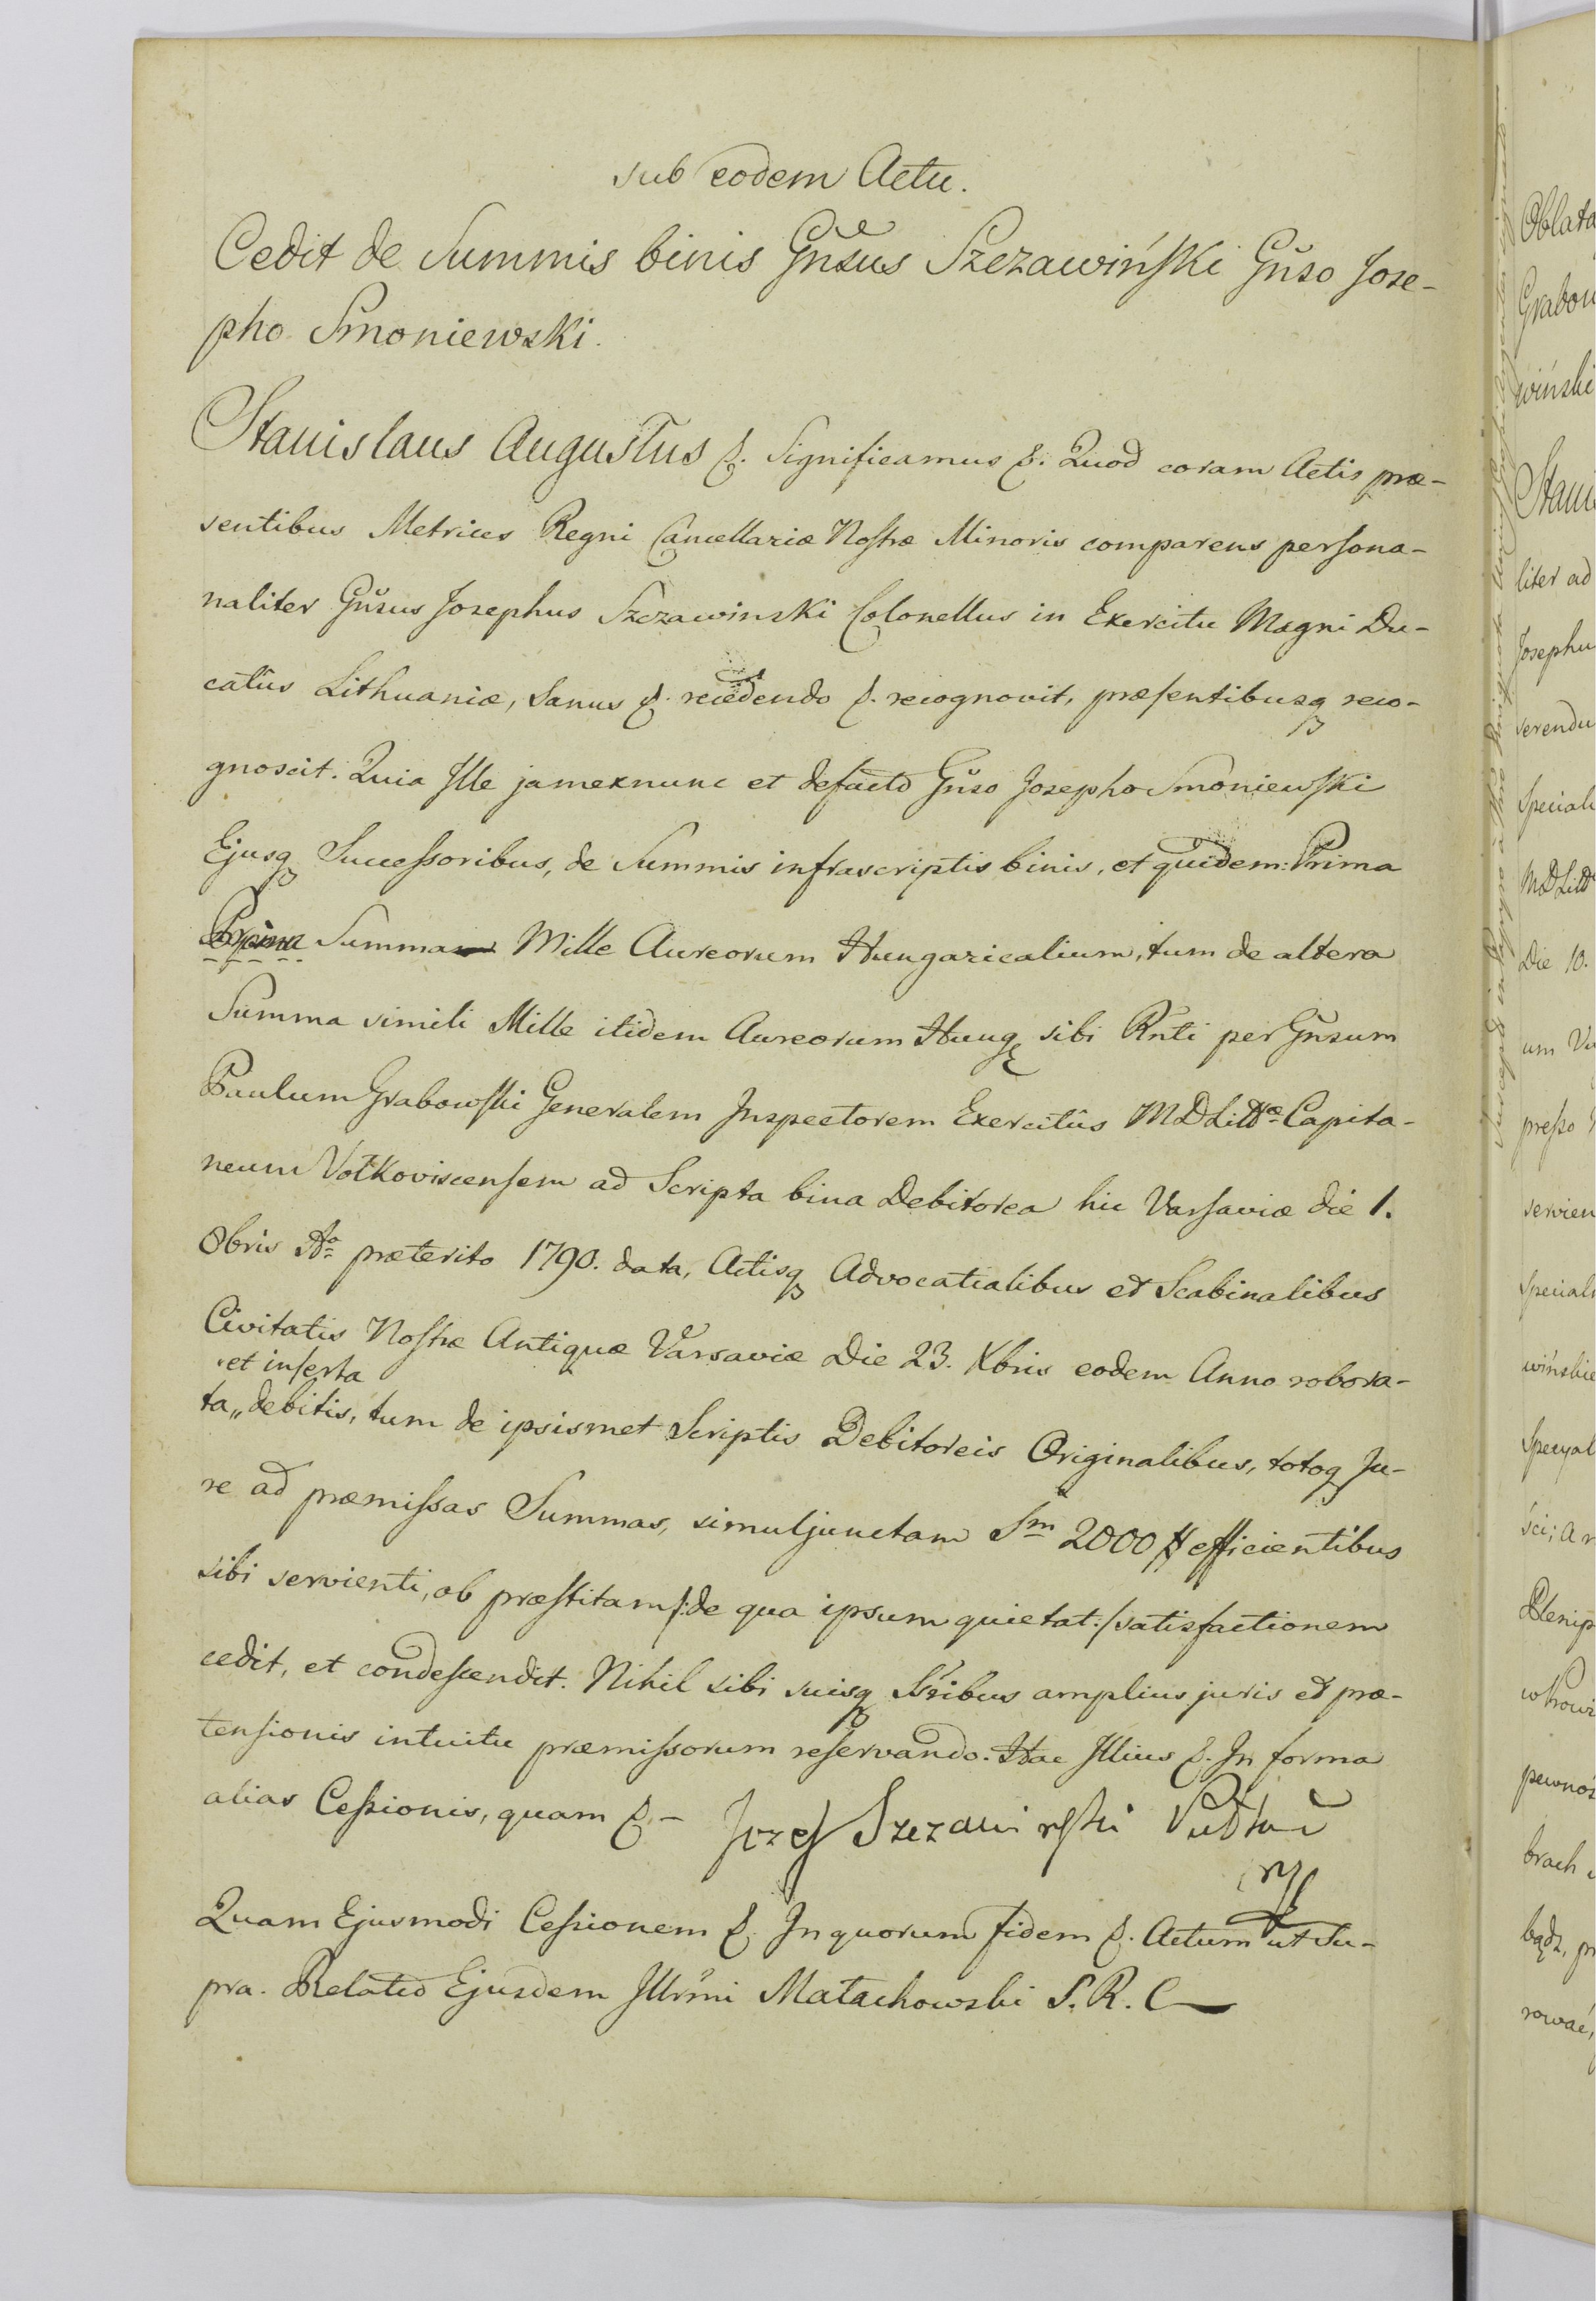 sub eodem Actu.
Cedit de Summis binis Gñsus Szczawiński Gñso Jose-
pho Smoniewski.
Stanislaus Augustus &. Significamus &. Quod coram Actis præ-
sentibus Metrices Regni Cancellariæ Nostræ Minoris comparens persona-
naliter Gñsus Josephus Szczawinski Colonellus in Exercitu Magni Du-
catûs Lithuaniæ, Sanus &. recedendo &. recognovit, præsentibusq reco-
gnoscit. Quia Ille jamexnunc et defacto Gñso Josepho Smoniewski
Ejusq Successoribus, de Summis infrascriptis binis, et quidem: Prima
Summa Mille Aureorum Hungaricalium, tum de altera
Summa simili Mille itidem Aureorum Hung sibi Rñti per Gñsum
Paulum Grabowski Generalem Inspectorem Exercitûs MDLittæ Capita-
neum Wołkoviscensem ad Scripta bina Debitorea hic Varsaviæ die 1.
8bris Ao præterito 1790. data, Actisq Advocatialibus et Scabinalibus
Civitatis Nostræ Antiquæ Varsaviæ Die 23. Xbris eodem Anno robora-
"et inserta
ta,, debitis, tum de ipsismet Scriptis Debitoreis Originalibus, totoq Ju-
re ad præmissas Summas, simuljunctam Sm 2000 # efficientibus
sibi servienti, ob præstitam /:de qua ipsum quietat:/ satisfactionem
cedit, et condescendit. Nihil sibi suisq Ssribus amplius juris et præ-
tensionis intuitu præmissorum reservando. Hac Illius &. In forma
alias Cessionis, quam &.- Jozef Szczawinski
Quam Ejusmodi Cessionem &. In quorum fidem &. Actum ut Su-
pra. Relatio Ejusdem Illrmi Małachowski S. R. C
Oblata
Grabow
wiński
Stani
liter ad
Josephu
serendu
Speciali
MDLitt
Die 10.
um Va
presso
servien
Speciali
wińskie
Specyal
ści; a
Plenip
pewnoś
brach
bądz, pr
rować,